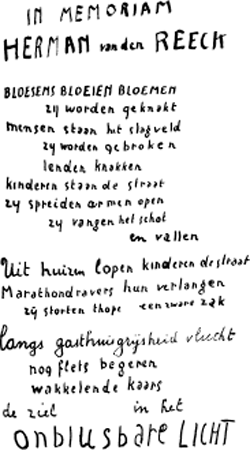 IN MEMORIAM
HERMAN van den REECK
BLOESEMS BLOEIEN BLOEMEN
zij worden geknakt
mensen staan het slagveld
zy worden gebroken
lenden knakken
kinderen staan de straat
zy spreiden armen open
zy vangen het schot
en vallen
Uit huizen lopen kinderen de straat
Marathondravers hun verlangen
zÿ storten thope een zware zak
langs gasthuisgrijsheid vlucht
nog flets begeren
wakkelende kaars
de ziel in het
onblusbare LICHT